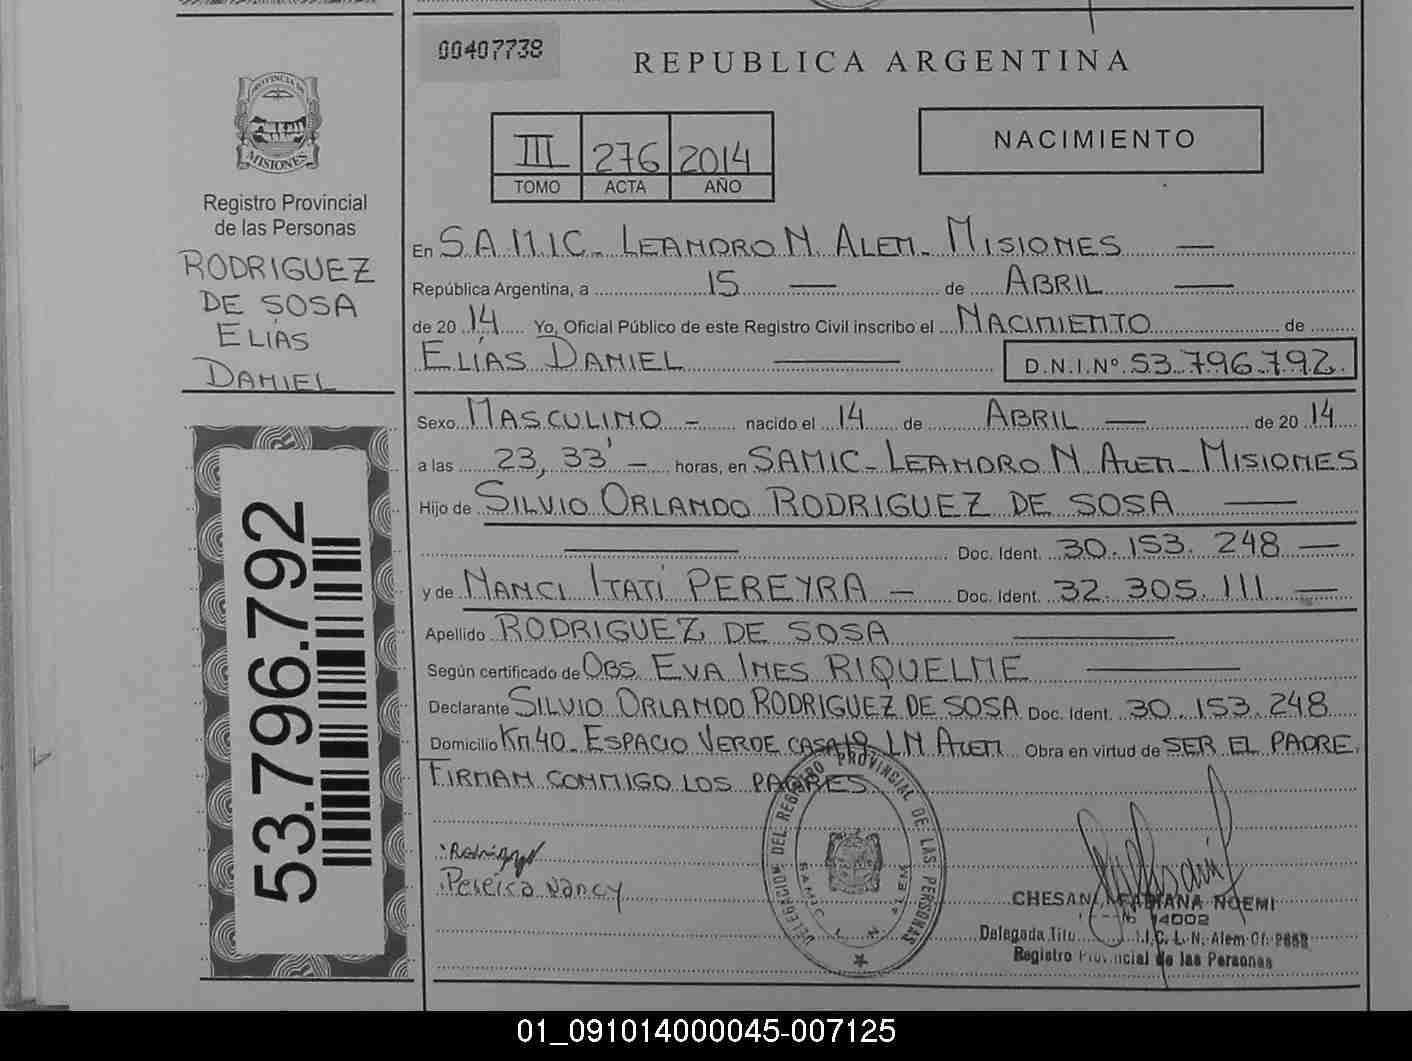 00407738
REPUBLICA ARGENTINA
PROVINCIA DE
MISIONES
Registro Provincial
de las Personas
RODRIGUEZ
DE SOSA
ELÍAS
DANIEL
53.796.792
III 276 2014
TOMO ACTA AÑO
NACIMIENTO
En S.A.M.I.C. LEANDRO N. ALEM - MISIONES
República Argentina, a 15 de ABRIL
de 20 14 Yo, Oficial Público de este Registro Civil inscribo el NACIMIENTO de
ELÍAS DANIEL D.N.I.Nº 53.796.792
Sexo MASCULINO - nacido el 14 de ABRIL de 20 14
a las 23,33' - horas, en SAMIC - LEANDRO N. ALEM - MISIONES
Hijo de SILVIO ORLANDO RODRIGUEZ DE SOSA
Doc. Ident. 30.153.248
y de NANCI ITATÍ PEREYRA - Doc. Ident. 32.305.111
Apellido RODRIGUEZ DE SOSA
Según certificado de OBS. EVA INES RIQUELME
Declarante SILVIO ORLANDO RODRIGUEZ DE SOSA Doc. Ident. 30.153.248
Domicilio KM.40 - ESPACIO VERDE CASA 19 L N ALEM Obra en virtud de SER EL PADRE.
FIRMAN CONMIGO LOS PADRES
Rodriguez
Pereira Nancy
DELEGACION DEL REGISTRO PROVINCIAL DE LAS PERSONAS
SAMIC L. N. ALEM
CHESANI, FABIANA NOEMI
14002
Delegada Titu I.C. L. N. Alem Of.
Registro Provincial de las Personas
01_091014000045-007125